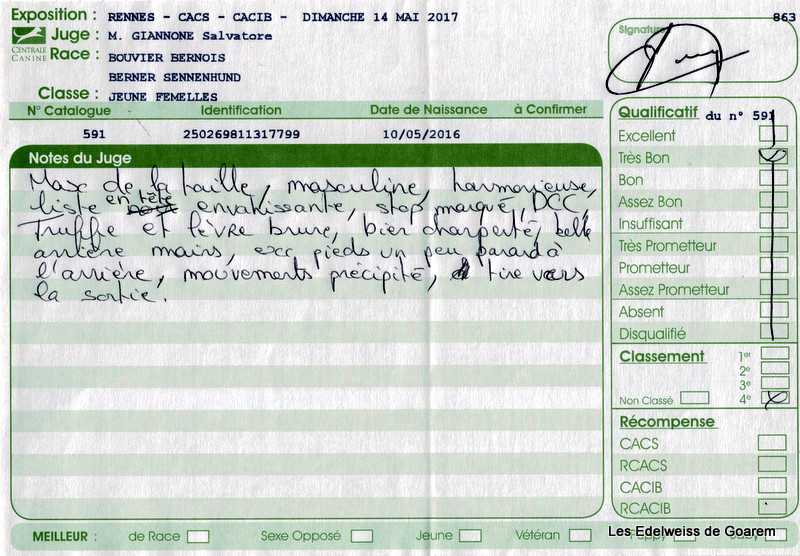 Exposition : RENNES - CACS - CACIB - DIMANCHE 14 MAI 2017
863
CENTRALE CANINE
Juge : M. GIANNONE Salvatore
Race : BOUVIER BERNOIS
BERNER SENNENHUND
Classe : JEUNE FEMELLES
Signature
N° Catalogue Identification Date de Naissance à Confirmer
591 250269811317799 10/05/2016
Notes du Juge
Max de la taille, masculine, harmonieuse,
liste en tête envahissante, stop marqué, DCC,
Truffe et lèvre brune, bien charpenté, belle
arrière mains, exc pieds un peu
l'arrière, mouvements précipité, tire vers
la sortie.
Qualificatif du n° 591
Excellent
Très Bon
Bon
Assez Bon
Insuffisant
Très Prometteur
Prometteur
Assez Prometteur
Absent
Disqualifié
Classement 1er
2e
3e
Non Classé 4e
Récompense
CACS
RCACS
CACIB
RCACIB
MEILLEUR : de Race Sexe Opposé Jeune Vétéran Puppy Baby
Les Edelweiss de Goarem